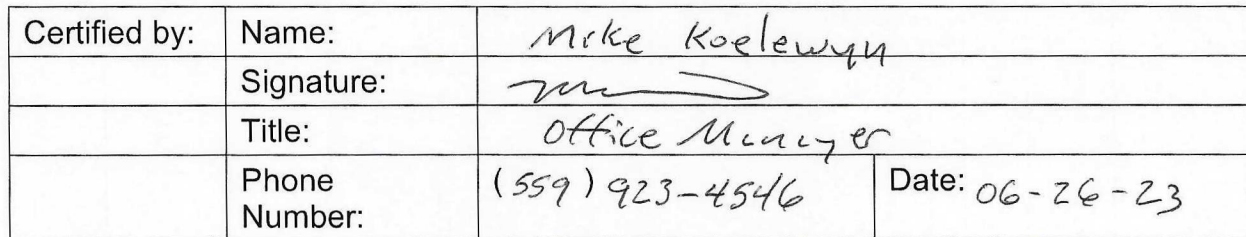 Certified by: Name: Mike Koelewyn
Signature:
Title: Office Manager
Phone Number: (559) 923-4546 Date: 06-26-23